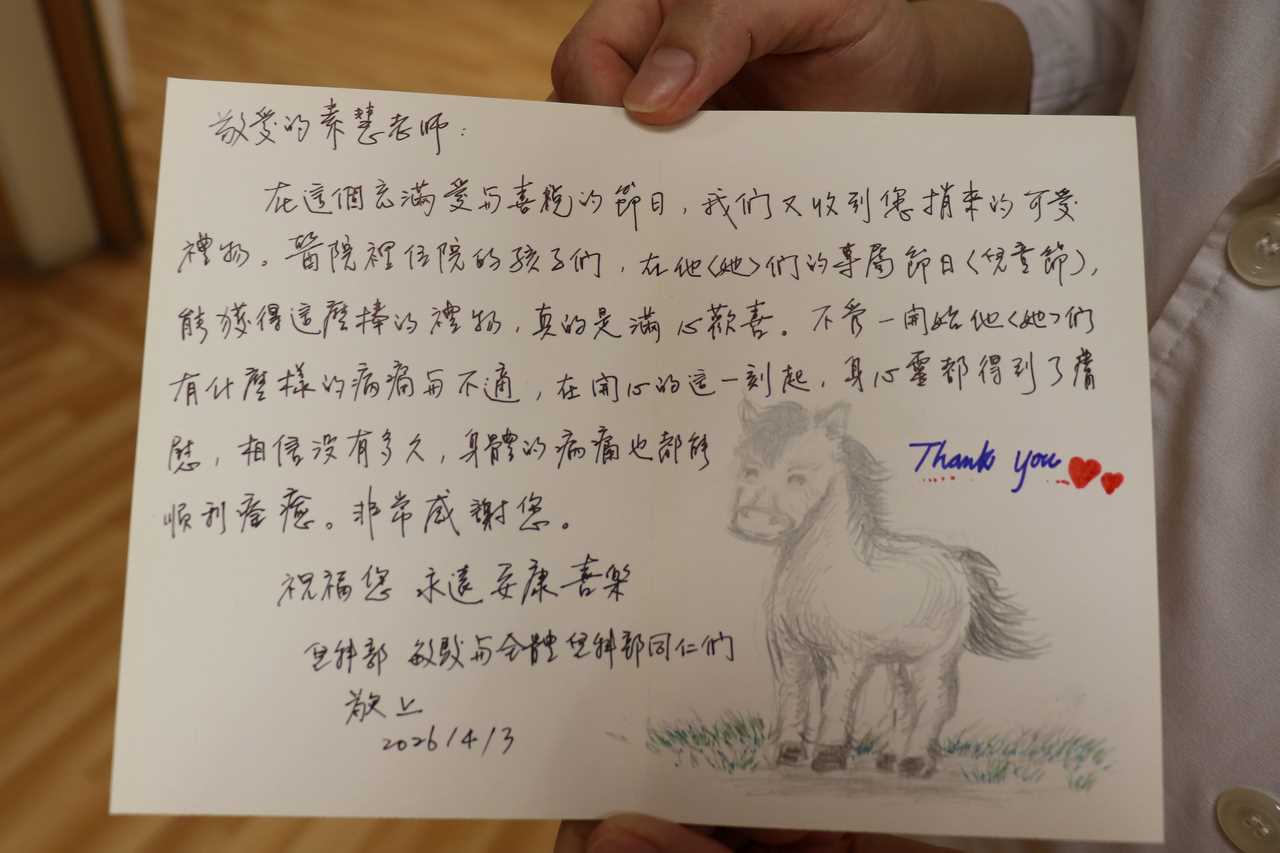 敬愛的素慧老师：
在這個充滿愛与喜悅的節日，我们又收到您捐来的可愛
禮物。醫院裡住院的孩子们，在他<她>们的專屬節日<兒童節>，
能獲得這麼棒的禮物，真的是滿心歡喜。不管一開始他<她>们
有什麼樣的病痛与不適，在開心的這一刻起，身心靈都得到了膚
慰，相信没有多久，身體的病痛也都能
順利痊癒。非常感謝您。
Thank you
祝福您 永遠安康喜樂
兒科部 与全體兒科部同仁們
敬上
2026/4/3